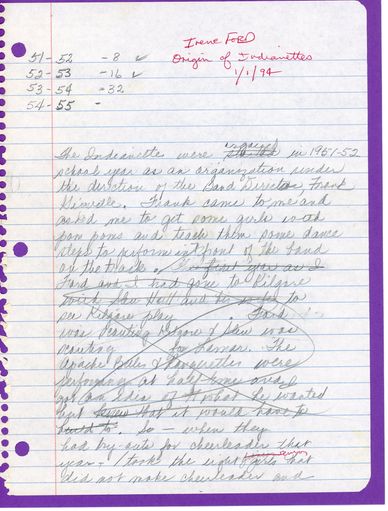 Irene FORD
Origin of Indianettes
1/1/94
51-52 - 8 ✓
52-53 - 16 ✓
53-54 - 32
54-55 -
The Indianettes were organized started in 1951-52
school year as an organization under
the direction of the Band Director, Frank
. Frank came to me and
asked me to get some girls with
pom poms and teach them some dance
steps to perform in front of the band
on the track. The first year as I
Ford and I had gone to Kilgore
Hall and her to
see Kilgore play Ford
was scouting Kilgore & was
scouting for Lamar. The
Apache Belles & Rangerettes were
performing at half time and
got an idea of what he wanted
but that it would have to
. So - when they
had try-outs for cheerleader that
year - I took the eight girls that
did not make cheerleader and